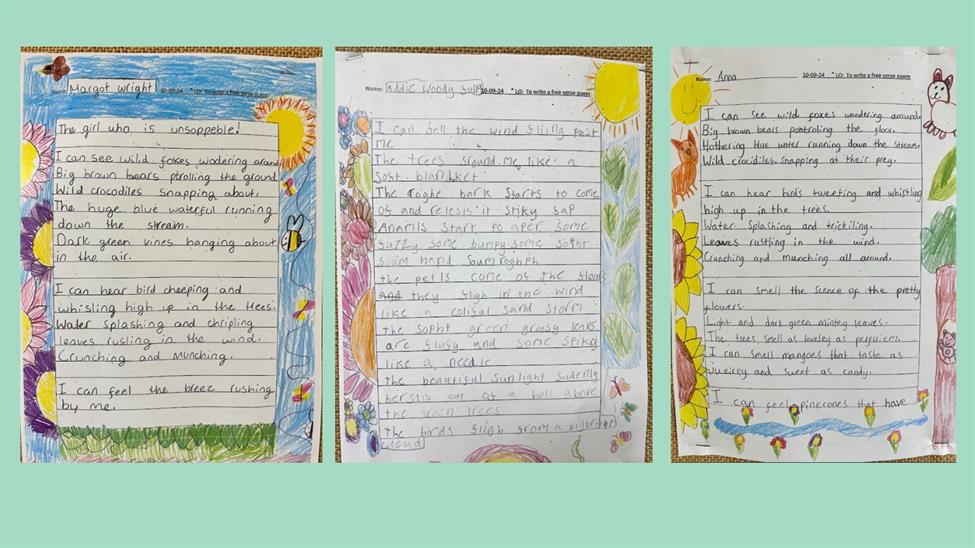 Margot Wright
10-09-24 * LO: To write a free verse poem
The girl who is unsoppeble!
I can see wild foxes wodering around
Big brown bears ptrolling the ground
Wild crocodiles snapping about.
The huge blue waterful running
down the stream.
Dark green vines hanging about
in the air.
I can hear bird cheeping and
whisling high up in the trees.
Water splashing and chripling
leaves rusling in the wind.
Ccrunching and Munching.
I can feel the breez rushing
by me.
Name: Addie Woody Sully
10-09-24 * LO: To write a free verse poem
I can fell the wind fliing past
me
The trees sround me like a
soft blandket
The roghe bark starts to come
of and relesis it stiky sap
Anamls start to aper some
fuzzy some bumpy some sopht
soum hand soum roghph
the petls come of the flowers
and they fligh in the wind
like a collful sand storm
the sopht green grasy leavs
are flufy and some spiky
like a needle
the beautiful sunlight sudenly
bersts out of a ball above
the green trees
the birds fligh from a
cloud
Name: Anna
10-09-24 * LO: To write a free verse poem
I can see wild foxes wondering around.
Big brown bears pontroling the floor.
Hothering blue water running down the stream.
Wild crocidiles snapping at their prey.
I can hear birds tweeting and whistling
high up in the trees.
Water splashing and trickiling.
Leaves rustling in the wind.
Crunching and munching all around.
I can smell the scence of the pretty
flowers.
Light and dark green mintey leaves.
The trees smell as loveley as perfuiem.
I can smell mangoes that taste as
juicey and sweet as candy.
I can feel pinecones that have